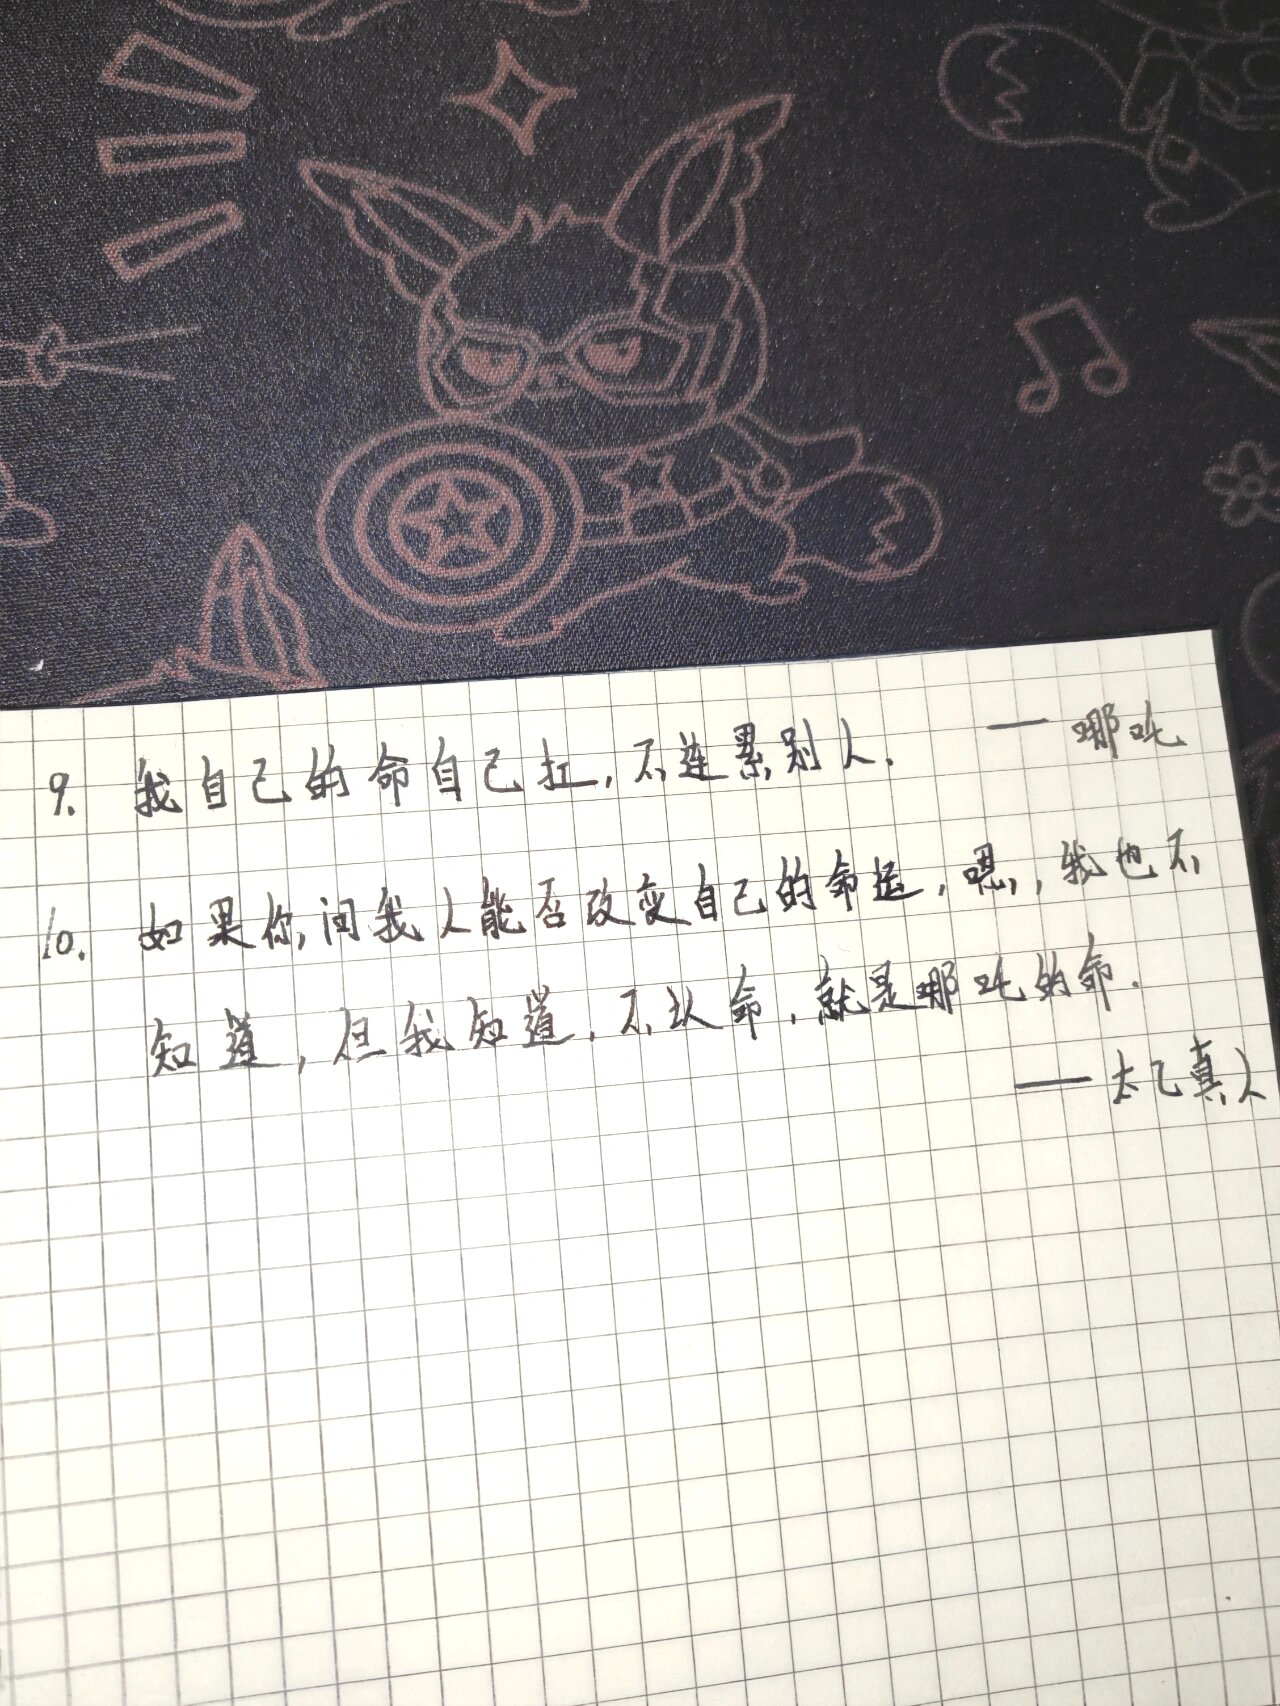 9. 我自己的命自己扛,不连累别人. —— 哪吒
10. 如果你问我人能否改变自己的命运,嗯,我也不
知道,但我知道,不认命,就是哪吒的命.
—— 太乙真人